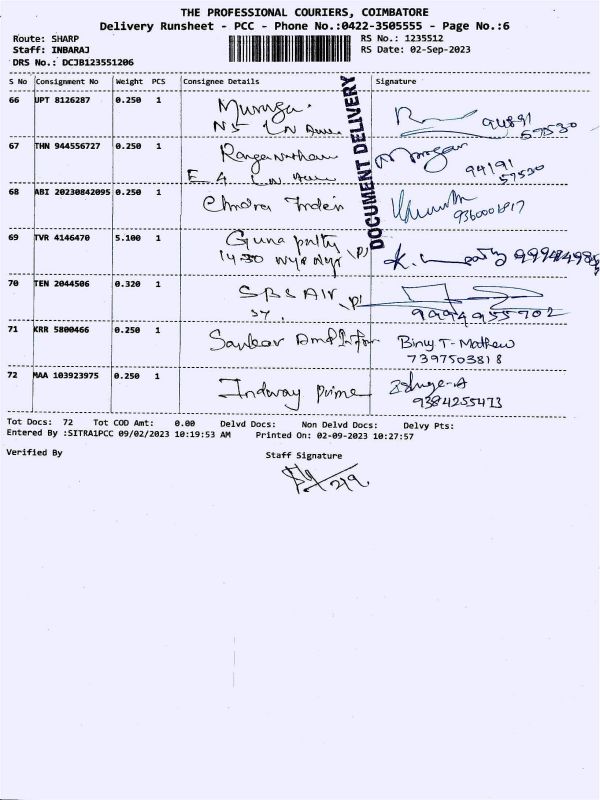 THE PROFESSIONAL COURIERS, COIMBATORE
Delivery Runsheet - PCC - Phone No.:0422-3505555 - Page No.:6
Route: SHARP
RS No.: 1235512
Staff: INBARAJ
RS Date: 02-Sep-2023
DRS No.: DCJB123551206
S No Consignment No Weight PCS Consignee Details Signature
66 UPT 8126287 0.250 1 Muruga.
N5 LN
94891
57530
67 THN 944556727 0.250 1 Ranganathan
E 4 LN
Murugan
94191
57530
68 ABI 20230842095 0.250 1 Chndra
69 TVR 4146470 5.100 1 Guna
14-30
K.
70 TEN 2044506 0.320 1 SBS AIR
37.
9994955702
71 KRR 5800466 0.250 1 Sankar
Binu T-Mathew
7397503818
72 MAA 103923975 0.250 1 Indway Prime
9384255473
DOCUMENT DELIVERY
Tot Docs: 72 Tot COD Amt: 0.00 Delvd Docs: Non Delvd Docs: Delvy Pts:
Entered By :SITRA1PCC 09/02/2023 10:19:53 AM Printed On: 02-09-2023 10:27:57
Verified By
Staff Signature
2/9